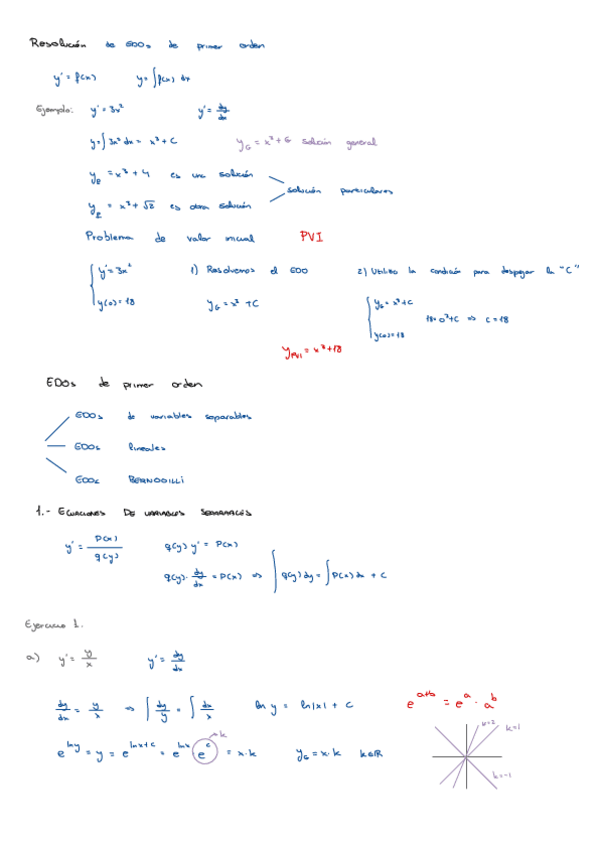 Resolución de EDOs de primer orden
y' = f(x) y = ∫f(x) dx
Ejemplo: y' = 3x² y' = dy/dx
y = ∫3x² dx = x³ + C y_G = x³ + C solución general
y_P = x³ + 4 es una solución
solución particulares
y_P = x³ + √2 es otra solución
Problema de valor inicial PVI
y' = 3x² 1) Resolvemos el EDO 2) Utilizo la condición para despejar la "C"
y(0) = 18 y_G = x³ + C y_G = x³ + C
18 = 0³ + C ⇒ C = 18
y(0) = 18
y_PVI = x³ + 18
EDOs de primer orden
EDOs de variables separables
EDOs lineales
EDOs BERNOUILLI
1.- ECUACIONES DE VARIABLES SEPARABLES
y' = P(x)/q(y) q(y) y' = P(x)
q(y) · dy/dx = P(x) ⇒ ∫q(y) dy = ∫P(x) dx + C
Ejercicio 1.
a) y' = y/x y' = dy/dx
dy/dx = y/x ⇒ ∫dy/y = ∫dx/x ln y = ln|x| + C e^(a+b) = e^a · a^b
e^(ln y) = y = e^(ln x + C) = e^(ln x) e^C = x·k y_G = x·k k∈ℝ
k
k=2 k=1
k=-1